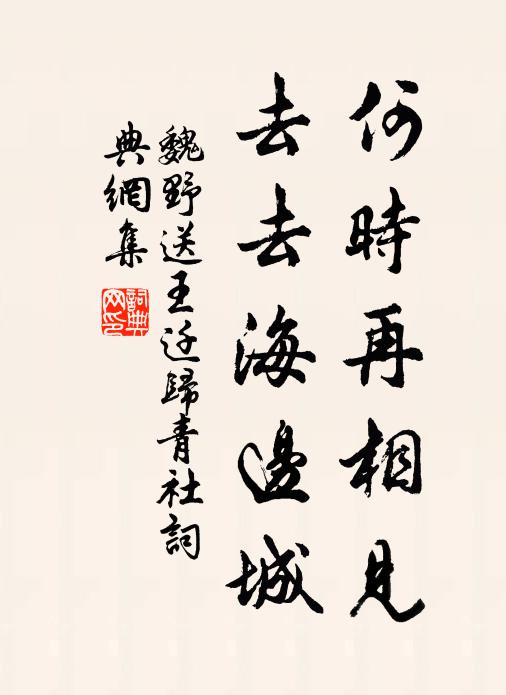 何時再相見
去去海邊城
魏野送王迁歸青社詞
典網集
詞典網印